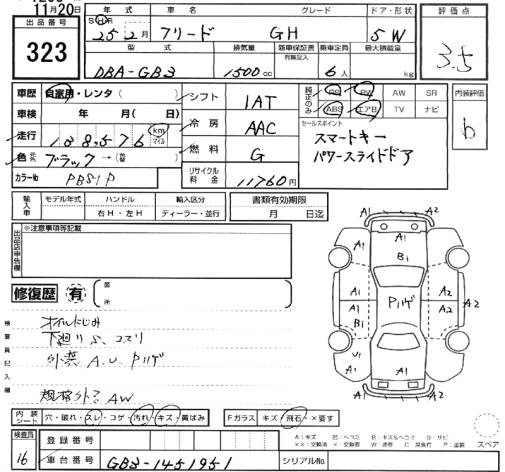 11月20日
出品番号
323
年式 車名 グレード ドア・形状
S・H 25年 2月 フリード GH 5W
型式 排気量 新車保証書 有無記入 乗車定員 最大積載量
DBA-GB3 1500cc 6人 kg
評価点
3.5
車歴 自家用・レンタ( )
車検 年 月( 日)
走行 138,576 km マイル
色 元色 ブラック→(替 )
カラーNo PB81P
シフト 1AT
冷房 AAC
燃料 G
リサイクル料金 11760円
純正のみ PS PW AW SR
ABS エアB TV ナビ
セールスポイント
スマートキー
パワースライドドア
内装評価
b
輸入車 モデル年式 ハンドル 輸入区分
右H・左H ディーラー・並行
書類有効期限
月 日迄
出品店申告欄 ※注意事項等記載
修復歴 有 箇所
検査員記入欄
オイルにじみ
下廻りS、コスリ
外装A.U.Pハゲ
規格外アAW
A1 A2
A1
A1 A1
B1
A1 Pハゲ A1 A2
B1
U1 A1
A1
A2 A1
内装シート 穴・破れ・スレ・コゲ・汚れ・キズ・黄ばみ
Fガラス キズ・飛石・×要す
A:キズ 凹:ヘコミ B:キズ&ヘコミ S:サビ
××:交換済 ×:交換 W:波有 C:腐食 P:塗装
スペア
検査員
16
登録番号
車台番号 GB3-1451951
シリアルNo